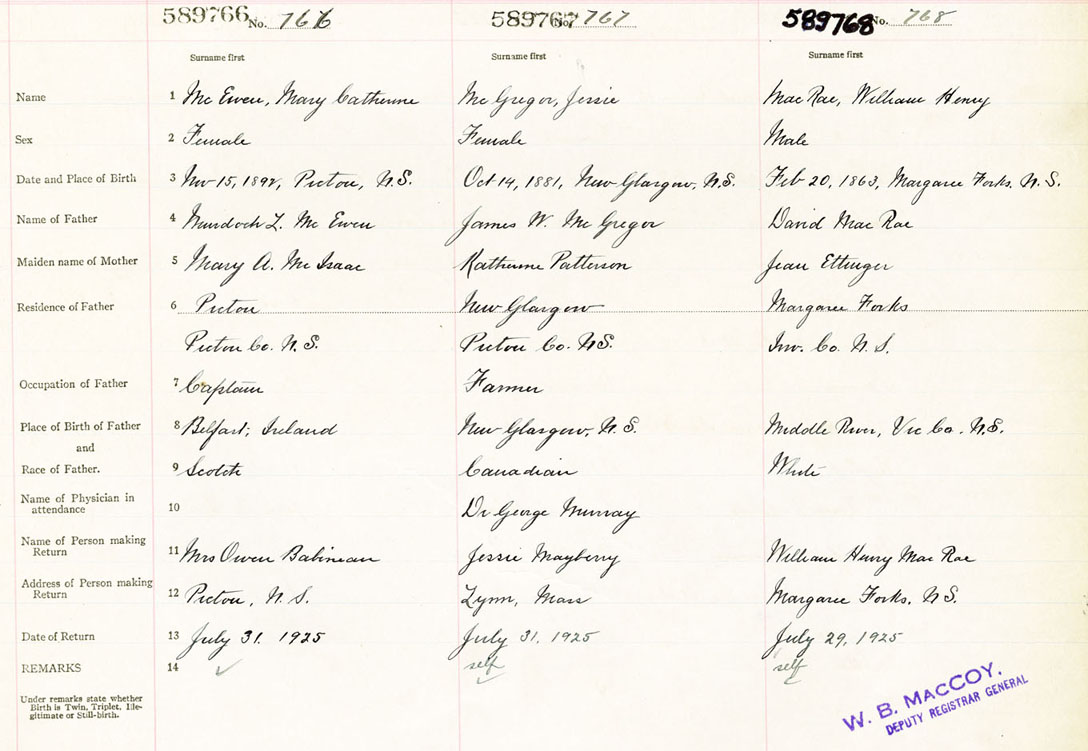 589766 No. 766 589767 No. 767 589768 No. 768
Surname first Surname first Surname first
Name 1 Mc Ewen, Mary Catherine Mc Gregor, Jessie Mac Rae, William Henry
Sex 2 Female Female Male
Date and Place of Birth 3 Nov 15, 1892, Pictou, N.S. Oct 14, 1881, New Glasgow, N.S. Feb 20, 1863, Margaree Forks. N.S.
Name of Father 4 Murdoch L. Mc Ewen James W. Mc Gregor David Mac Rae
Maiden name of Mother 5 Mary A. Mc Isaac Katherine Patterson Jean Ettinger
Residence of Father 6 Pictou New Glasgow Margaree Forks
Pictou Co. N.S. Pictou Co. N.S. Inv. Co. N.S.
Occupation of Father 7 Captain Farmer
Place of Birth of Father 8 Belfast, Ireland New Glasgow, N.S. Middle River, Vic Co. N.S.
and
Race of Father. 9 Scotch Canadian White
Name of Physician in
attendance 10 Dr George Murray
Name of Person making
Return 11 Mrs Owen Babineau Jessie Mayberry William Henry Mac Rae
Address of Person making
Return 12 Pictou, N.S. Lynn, Mass Margaree Forks. N.S.
Date of Return 13 July 31. 1925 July 31. 1925 July 29, 1925
REMARKS 14 self self
Under remarks state whether
Birth is Twin, Triplet, Ille-
gitimate or Still-birth.
W. B. MACCOY.
DEPUTY REGISTRAR GENERAL